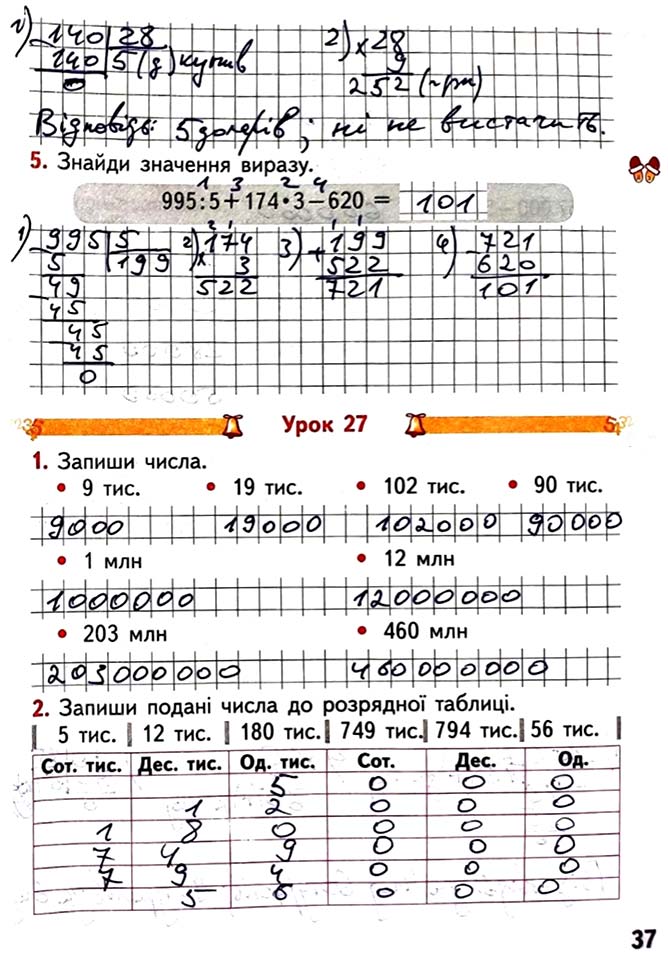 1) 140 28 2) ×28
140 5 (д) купив 9
0 252 (грн)
Відповідь: 5 доларів; ні не вистачить.
5. Знайди значення виразу.
1 3 2 4
995:5+174•3−620 = 101
1) 995 5 2) 174 3) 199 4) 721
5 199 × 3 + 522 620
49 522 721 101
45
45
45
0
Урок 27
1. Запиши числа.
• 9 тис. • 19 тис. • 102 тис. • 90 тис.
9000 19000 102000 90000
• 1 млн • 12 млн
1000000 12000000
• 203 млн • 460 млн
203000000 460000000
2. Запиши подані числа до розрядної таблиці.
5 тис. 12 тис. 180 тис. 749 тис. 794 тис. 56 тис.
Сот. тис. Дес. тис. Од. тис. Сот. Дес. Од.
5 0 0 0
1 2 0 0 0
1 8 0 0 0 0
7 4 9 0 0 0
7 9 4 0 0 0
5 6 0 0 0
37